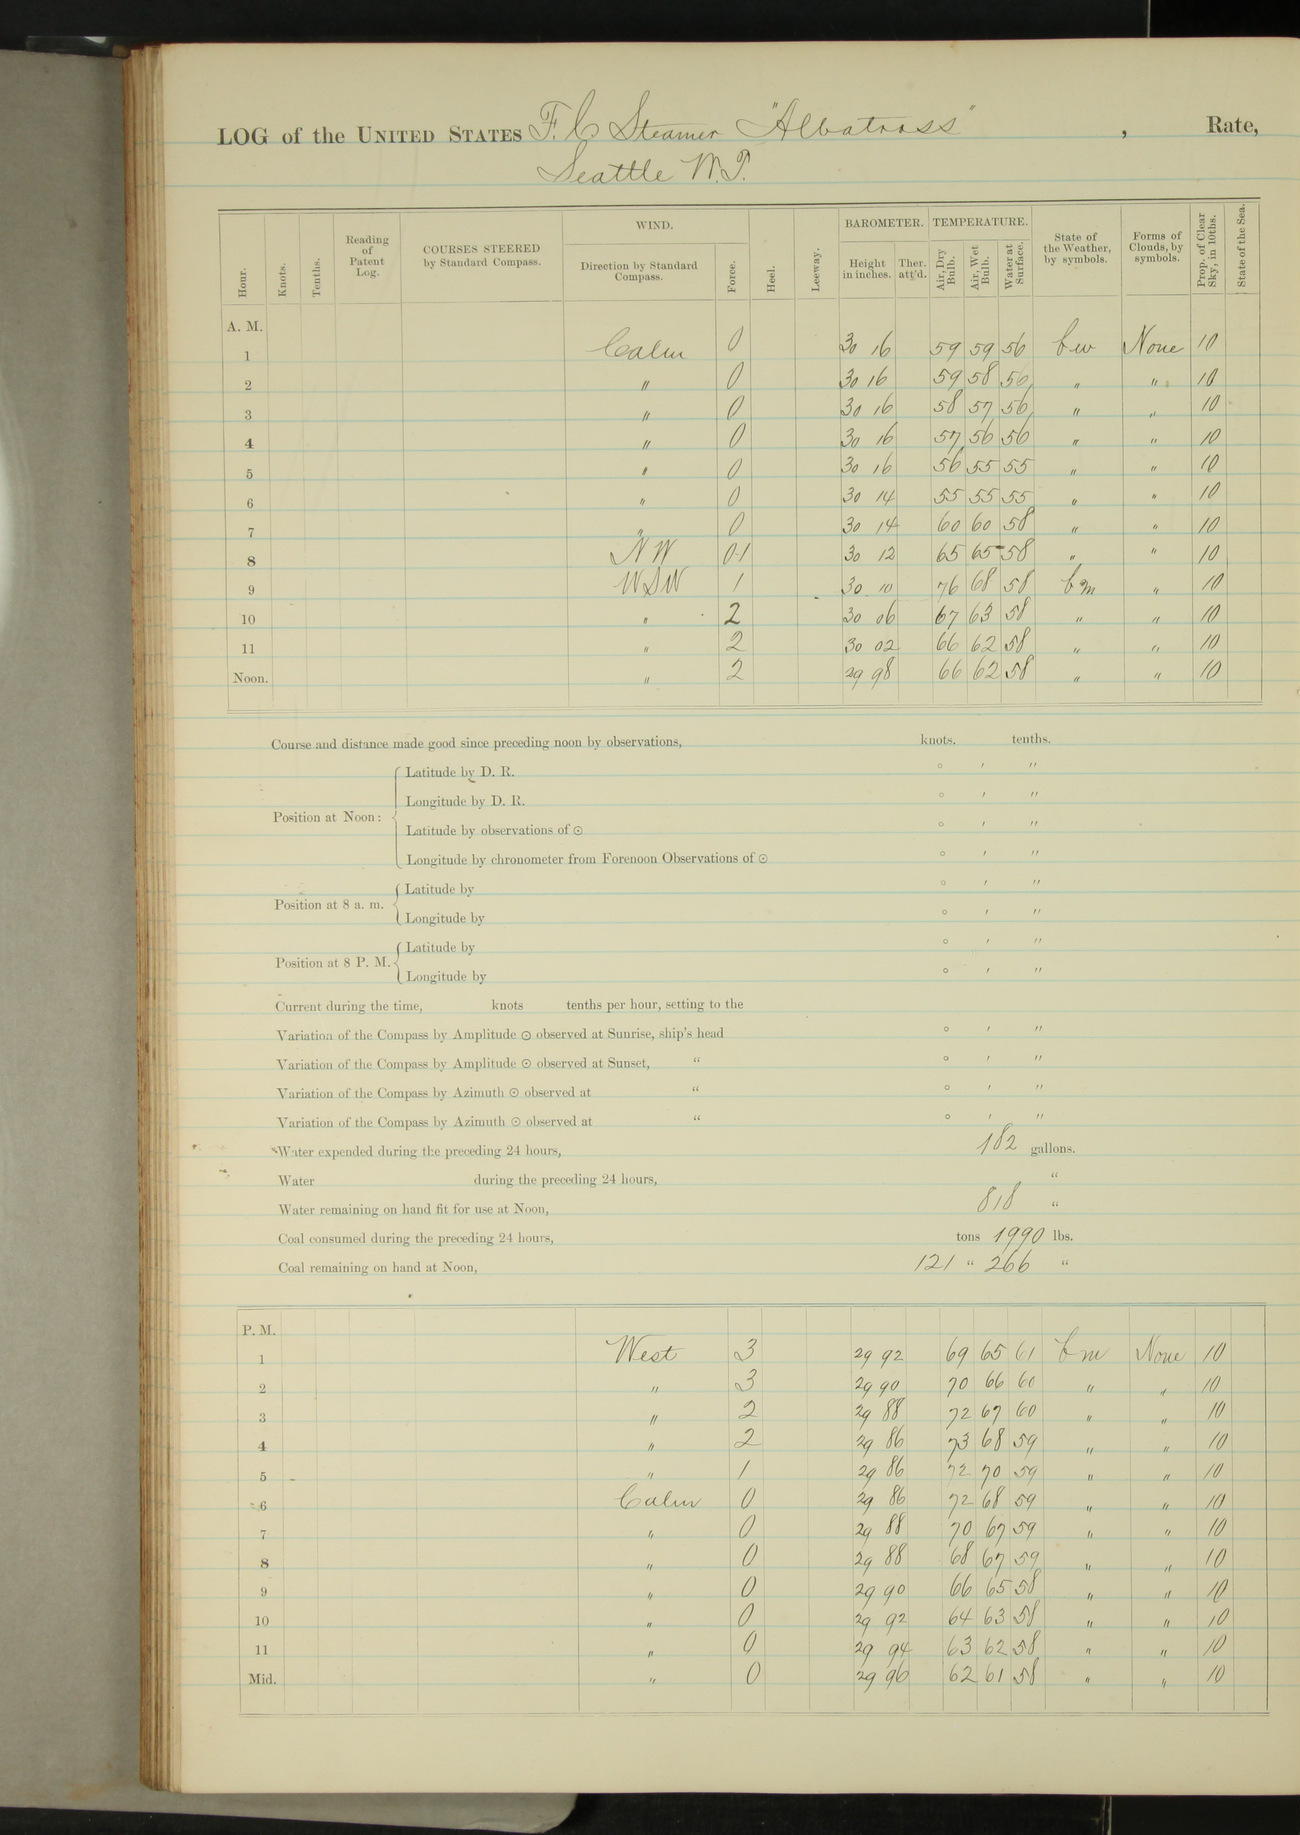 LOG of the UNITED STATES F. C. Steamer "Albatross", Rate,
Seattle W.T.
Hour. Knots. Tenths. Reading of Patent Log. COURSES STEERED by Standard Compass. WIND. Direction by Standard Compass. Force. Heel. Leeway. BAROMETER. Height in inches. Ther. att'd. TEMPERATURE. Air, Dry Bulb. Air, Wet Bulb. Water at Surface. State of the Weather, by symbols. Forms of Clouds, by symbols. Prop. of Clear Sky, in 10ths. State of the Sea.
A. M.
1 Calm 0 30 16 59 59 56 bw None 10
2 " 0 30 16 59 58 56 " " 10
3 " 0 30 16 58 57 56 " " 10
4 " 0 30 16 57 56 56 " " 10
5 " 0 30 16 56 55 55 " " 10
6 " 0 30 14 55 55 55 " " 10
7 " 0 30 14 60 60 58 " " 10
8 NW 0-1 30 12 65 65 58 " " 10
9 WSW 1 30 10 76 68 58 bm " 10
10 " 2 30 06 67 63 58 " " 10
11 " 2 30 02 66 62 58 " " 10
Noon. " 2 29 98 66 62 58 " " 10
Course and distance made good since preceding noon by observations, knots. tenths.
Latitude by D. R. ° ′ ″
Longitude by D. R. ° ′ ″
Position at Noon:
Latitude by observations of ⊙ ° ′ ″
Longitude by chronometer from Forenoon Observations of ⊙ ° ′ ″
Latitude by ° ′ ″
Position at 8 a. m.
Longitude by ° ′ ″
Latitude by ° ′ ″
Position at 8 P. M.
Longitude by ° ′ ″
Current during the time, knots tenths per hour, setting to the
Variation of the Compass by Amplitude ⊙ observed at Sunrise, ship's head ° ′ ″
Variation of the Compass by Amplitude ⊙ observed at Sunset, " ° ′ ″
Variation of the Compass by Azimuth ⊙ observed at " ° ′ ″
Variation of the Compass by Azimuth ⊙ observed at " ° ′ ″
Water expended during the preceding 24 hours, 182 gallons.
Water during the preceding 24 hours, "
Water remaining on hand fit for use at Noon, 818 "
Coal consumed during the preceding 24 hours, tons 1990 lbs.
Coal remaining on hand at Noon, 121 " 266 "
P. M.
1 West 3 29 92 69 65 61 bm None 10
2 " 3 29 90 70 66 60 " " 10
3 " 2 29 88 72 67 60 " " 10
4 " 2 29 86 73 68 59 " " 10
5 " 1 29 86 72 70 59 " " 10
6 Calm 0 29 86 72 68 59 " " 10
7 " 0 29 88 70 67 59 " " 10
8 " 0 29 88 68 67 59 " " 10
9 " 0 29 90 66 65 58 " " 10
10 " 0 29 92 64 63 58 " " 10
11 " 0 29 94 63 62 58 " " 10
Mid. " 0 29 96 62 61 58 " " 10